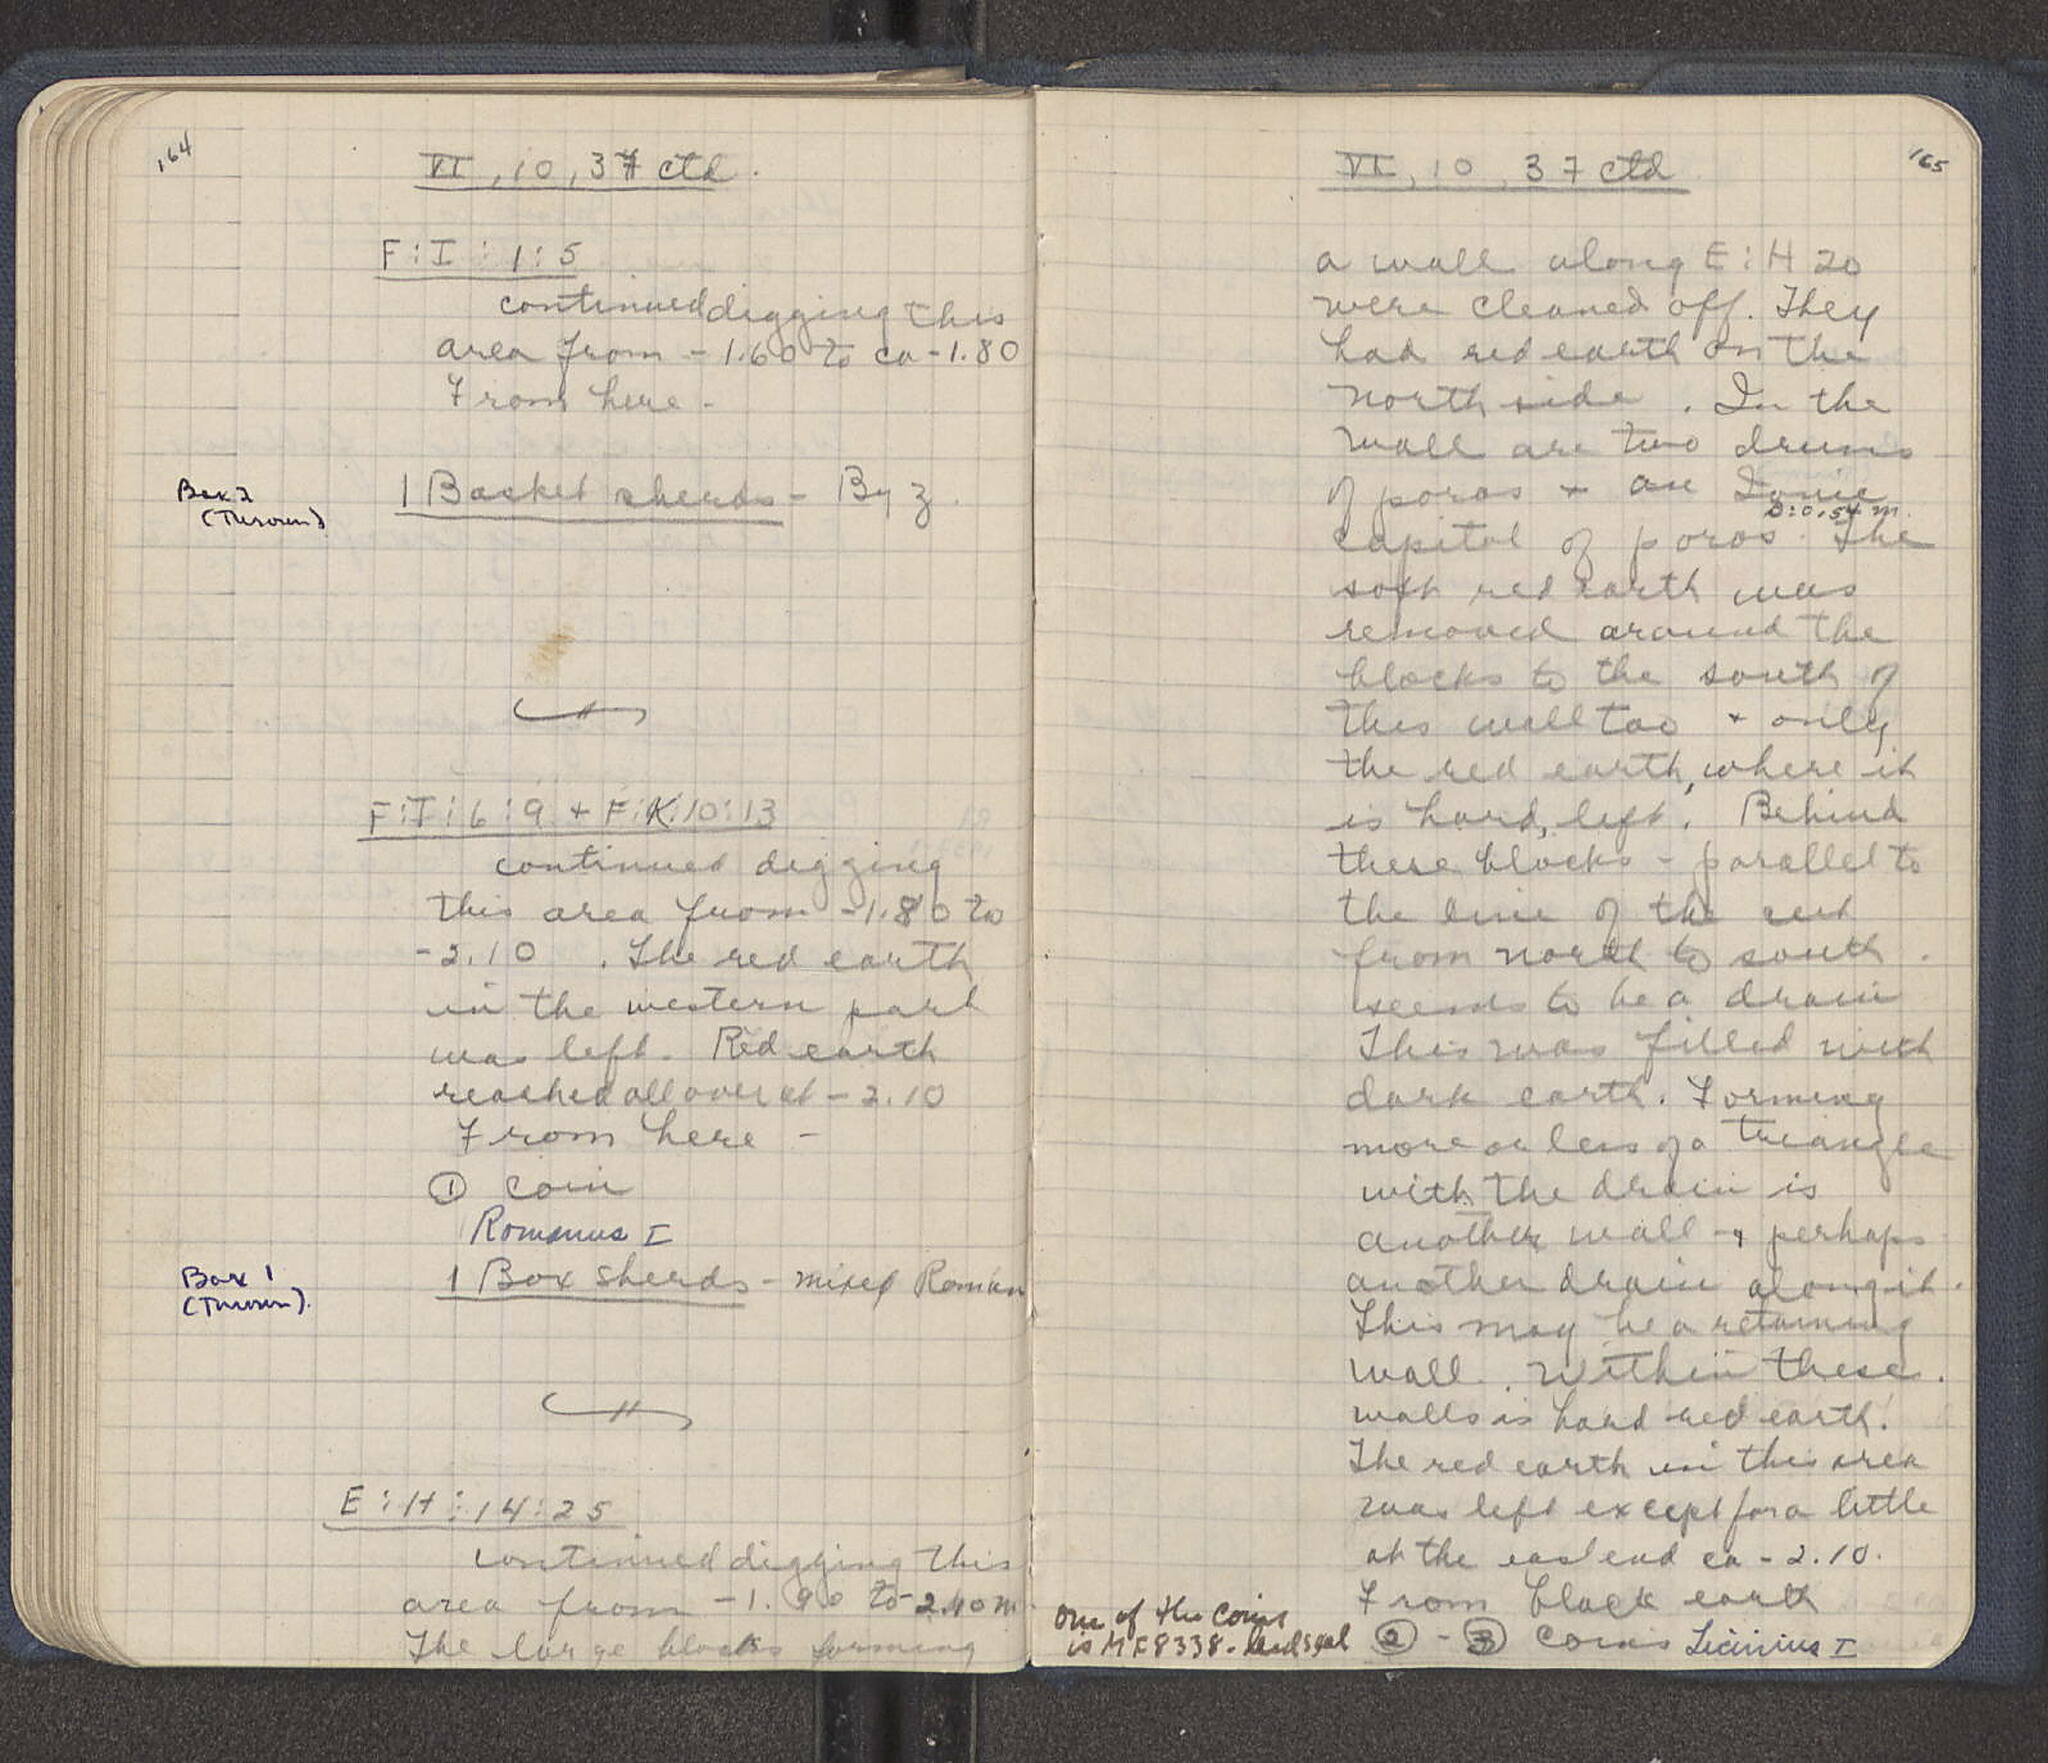 164
VI, 10, 37 ctd.
F:I:1:5
continued digging this
area from -1.60 to ca -1.80
From here -
Box 2
(Thrown)
1 Basket sherds - Byz.
F:I:6:9 + F:K:10:13
continued digging
this area from -1.80 to
-2.10. The red earth
in the western part
was left. Red earth
reached all over at -2.10
From here -
① coin
Romanus I
Box 1
(Thrown).
1 Box sherds - mixed Roman
E:H:14:25
continued digging this
area from -1.90 to -2.40 m
The large blocks forming
165
VI, 10, 37 ctd
a wall along E:H 20
were cleaned off. They
had red earth on the
north side. In the
wall are two drums
of poros + an Ionic
D:0.54 m.
capital of poros. The
soft red earth was
removed around the
blocks to the south of
this wall too + only
the red earth, where it
is hard, left. Behind
these blocks - parallel to
the line of the cut
from north to south.
seems to be a drain
This was filled with
dark earth. Forming
more or less of a triangle
with the drain is
another wall - + perhaps
another drain along it.
This may be a retaining
wall. Within these.
walls is hard red earth.
The red earth in this area
was left except for a little
at the east end ca -2.10.
From black earth
② - ③ Coins Licinius I
One of the coins
is MF8338 - lead seal